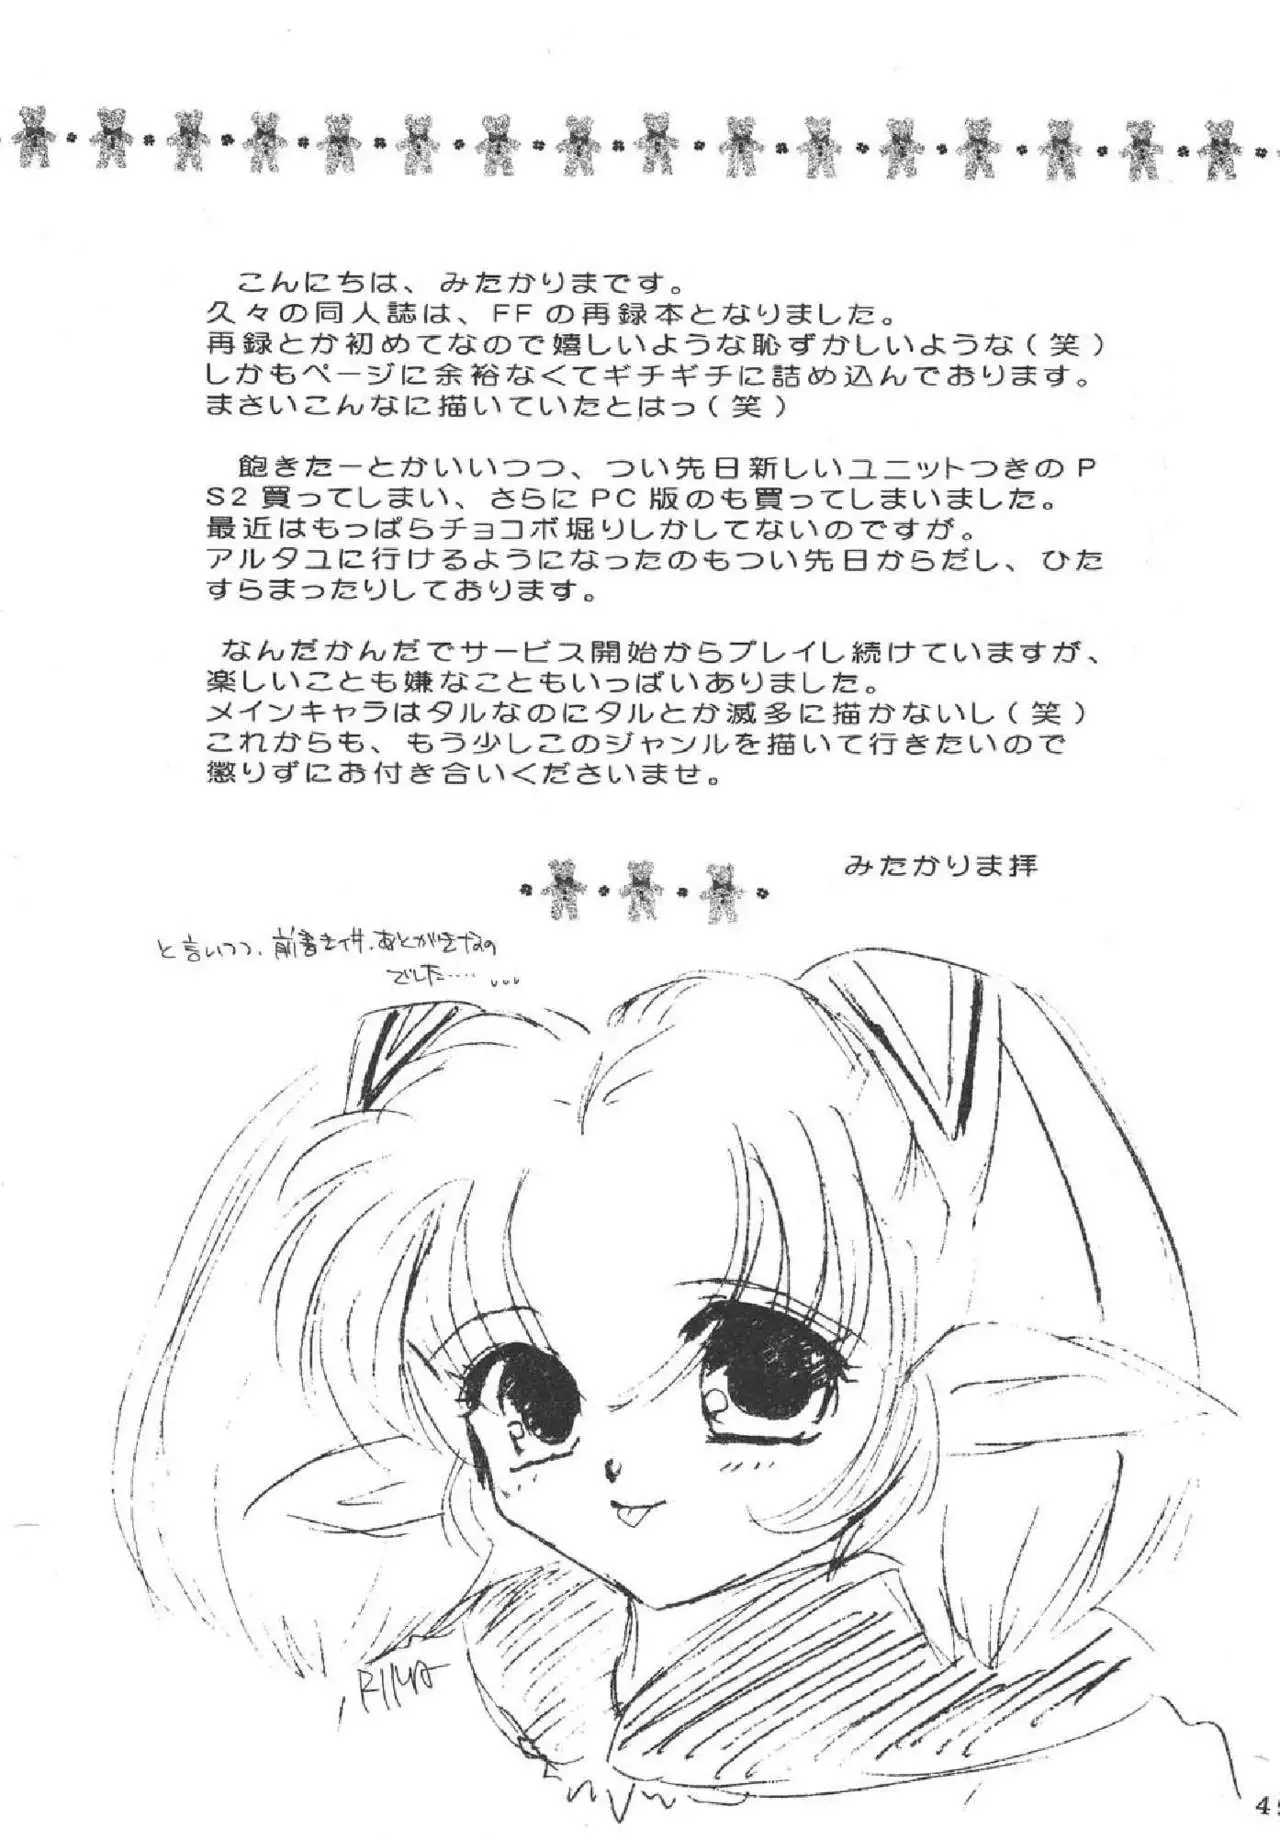 こんにちは、みたかりまです。
久々の同人誌は、FFの再録本となりました。
再録とか初めてなので嬉しいような恥ずかしいような(笑)
しかもページに余裕なくてギチギチに詰め込んでおります。
まさいこんなに描いていたとはっ(笑)
飽きたーとかいいつつ、つい先日新しいユニットつきのP
S2買ってしまい、さらにPC版のも買ってしまいました。
最近はもっぱらチョコボ堀りしかしてないのですが。
アルタユに行けるようになったのもつい先日からだし、ひた
すらまったりしております。
なんだかんだでサービス開始からプレイし続けていますが、
楽しいことも嫌なこともいっぱいありました。
メインキャラはタルなのにタルとか滅多に描かないし(笑)
これからも、もう少しこのジャンルを描いて行きたいので
懲りずにお付き合いくださいませ。
みたかりま拝
と言いつつ、前書き件、あとがきなの
でした……
RIMA